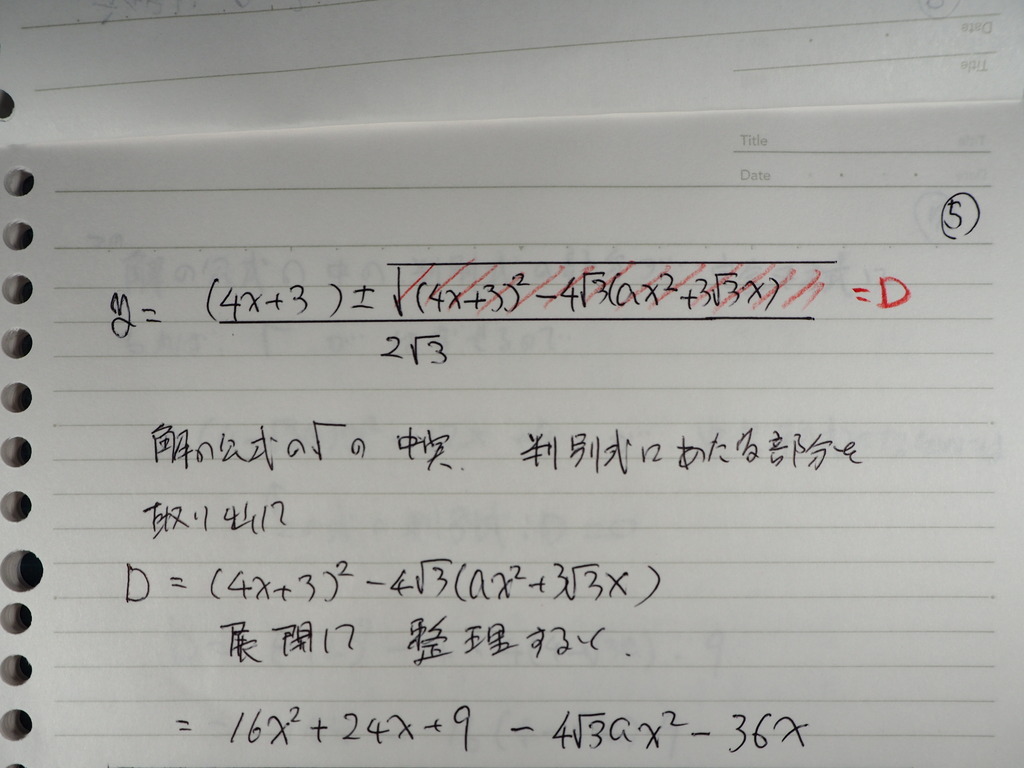 Title
Date
⑤
y = (4x+3) ± √((4x+3)² - 4√3(ax²+3√3x)) = D
2√3
解の公式の√の中実. 判別式にあたる部分を
取り出して
D = (4x+3)² - 4√3(ax²+3√3x)
展開して 整理すると.
= 16x² + 24x + 9 - 4√3ax² - 36x